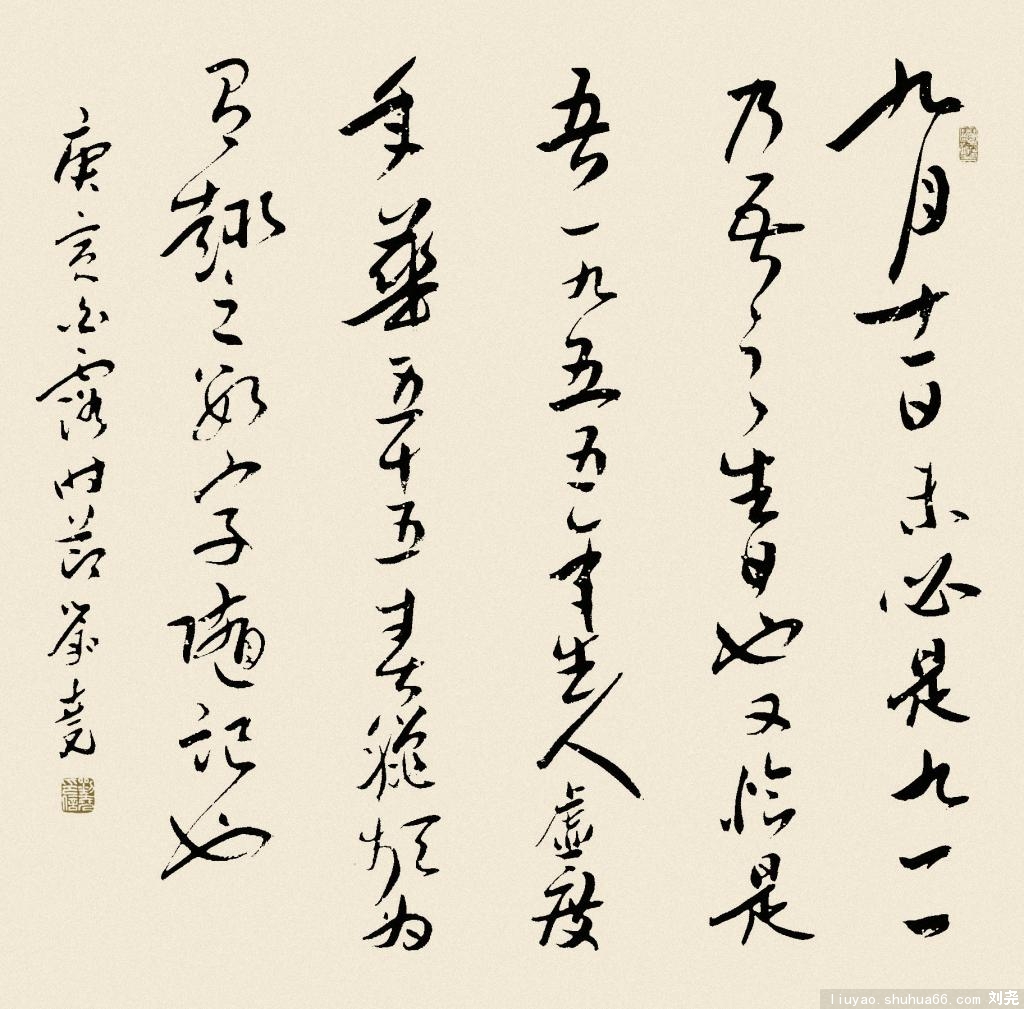 九月十一日未必是九一一
乃吾之生日也又恰是
吾一九五五年生人虚度
年華五十五春頗为
有趣之數字隨記也
庚寅白露时节劉堯
liuyao.shuhua66.com 刘尧